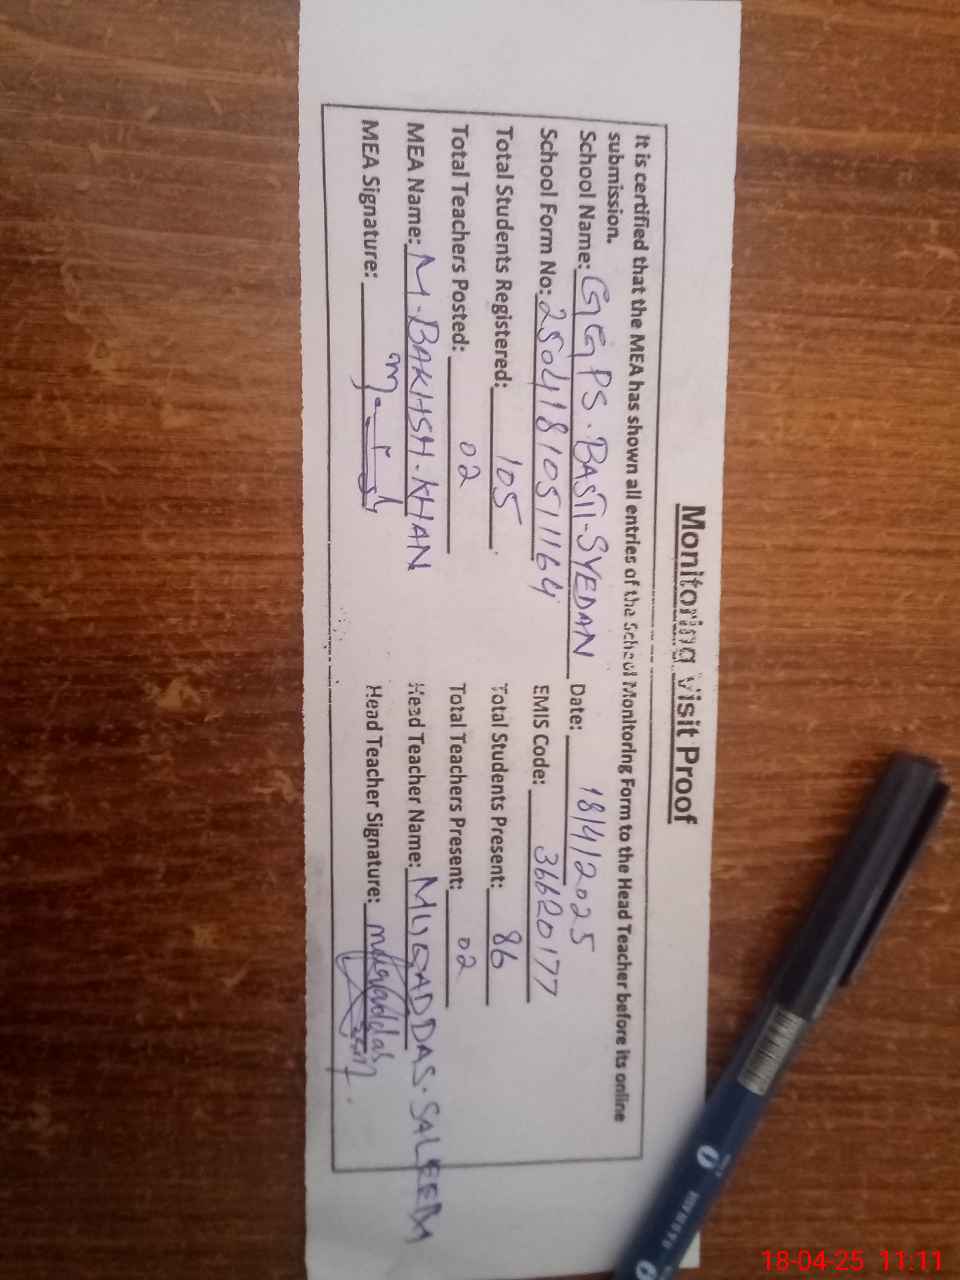 Monitoring Visit Proof
It is certified that the MEA has shown all entries of the School Monitoring Form to the Head Teacher before its online
submission.
School Name: GGPS. BASTI-SYEDAN Date: 18/4/2025
School Form No: 25041810511164 EMIS Code: 36620177
Total Students Registered: 105 Total Students Present: 86
Total Teachers Posted: 02 Total Teachers Present: 02
MEA Name: M. BAKHSH. KHAN Head Teacher Name: MUQADDAS. SALEEM
MEA Signature: Head Teacher Signature: muqaddas
18-04-25 11:11